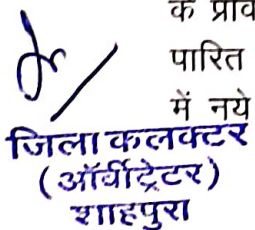 के प्राव
पारित
में नये
जिला कलक्टर
(ऑर्वीट्रेटर)
शाहपुरा